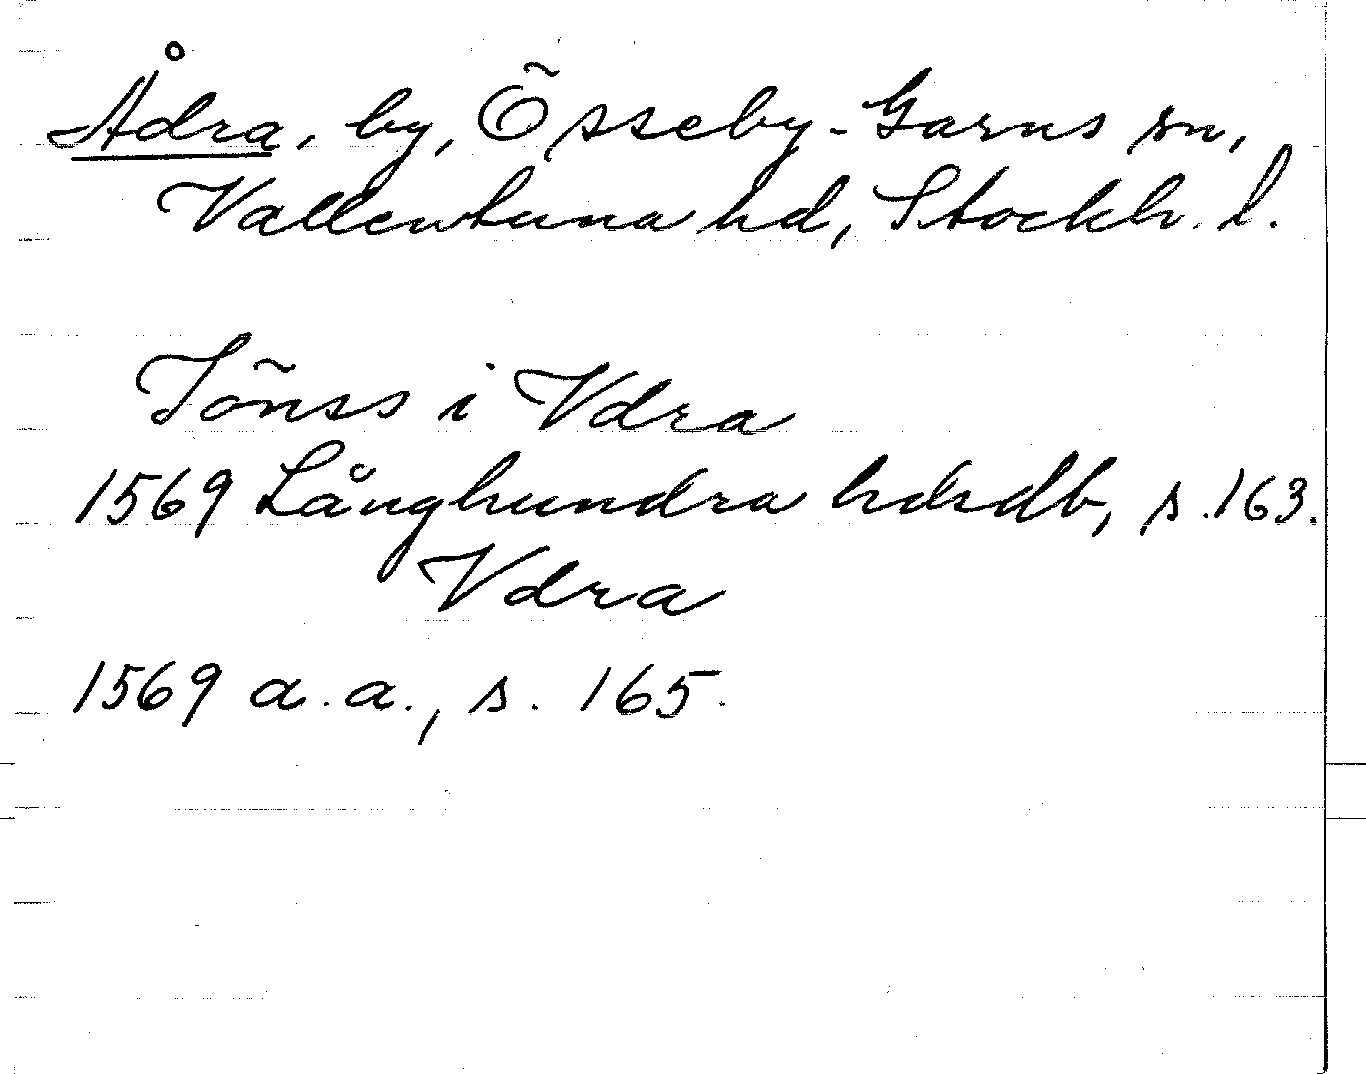 Ådra, by, Össeby-Garns sn,
Vallentuna hd, Stockh. l.
Jönss i Vdra
1569 Långhundra hdsdb, s. 163.
Vdra
1569 a.a., s. 165.